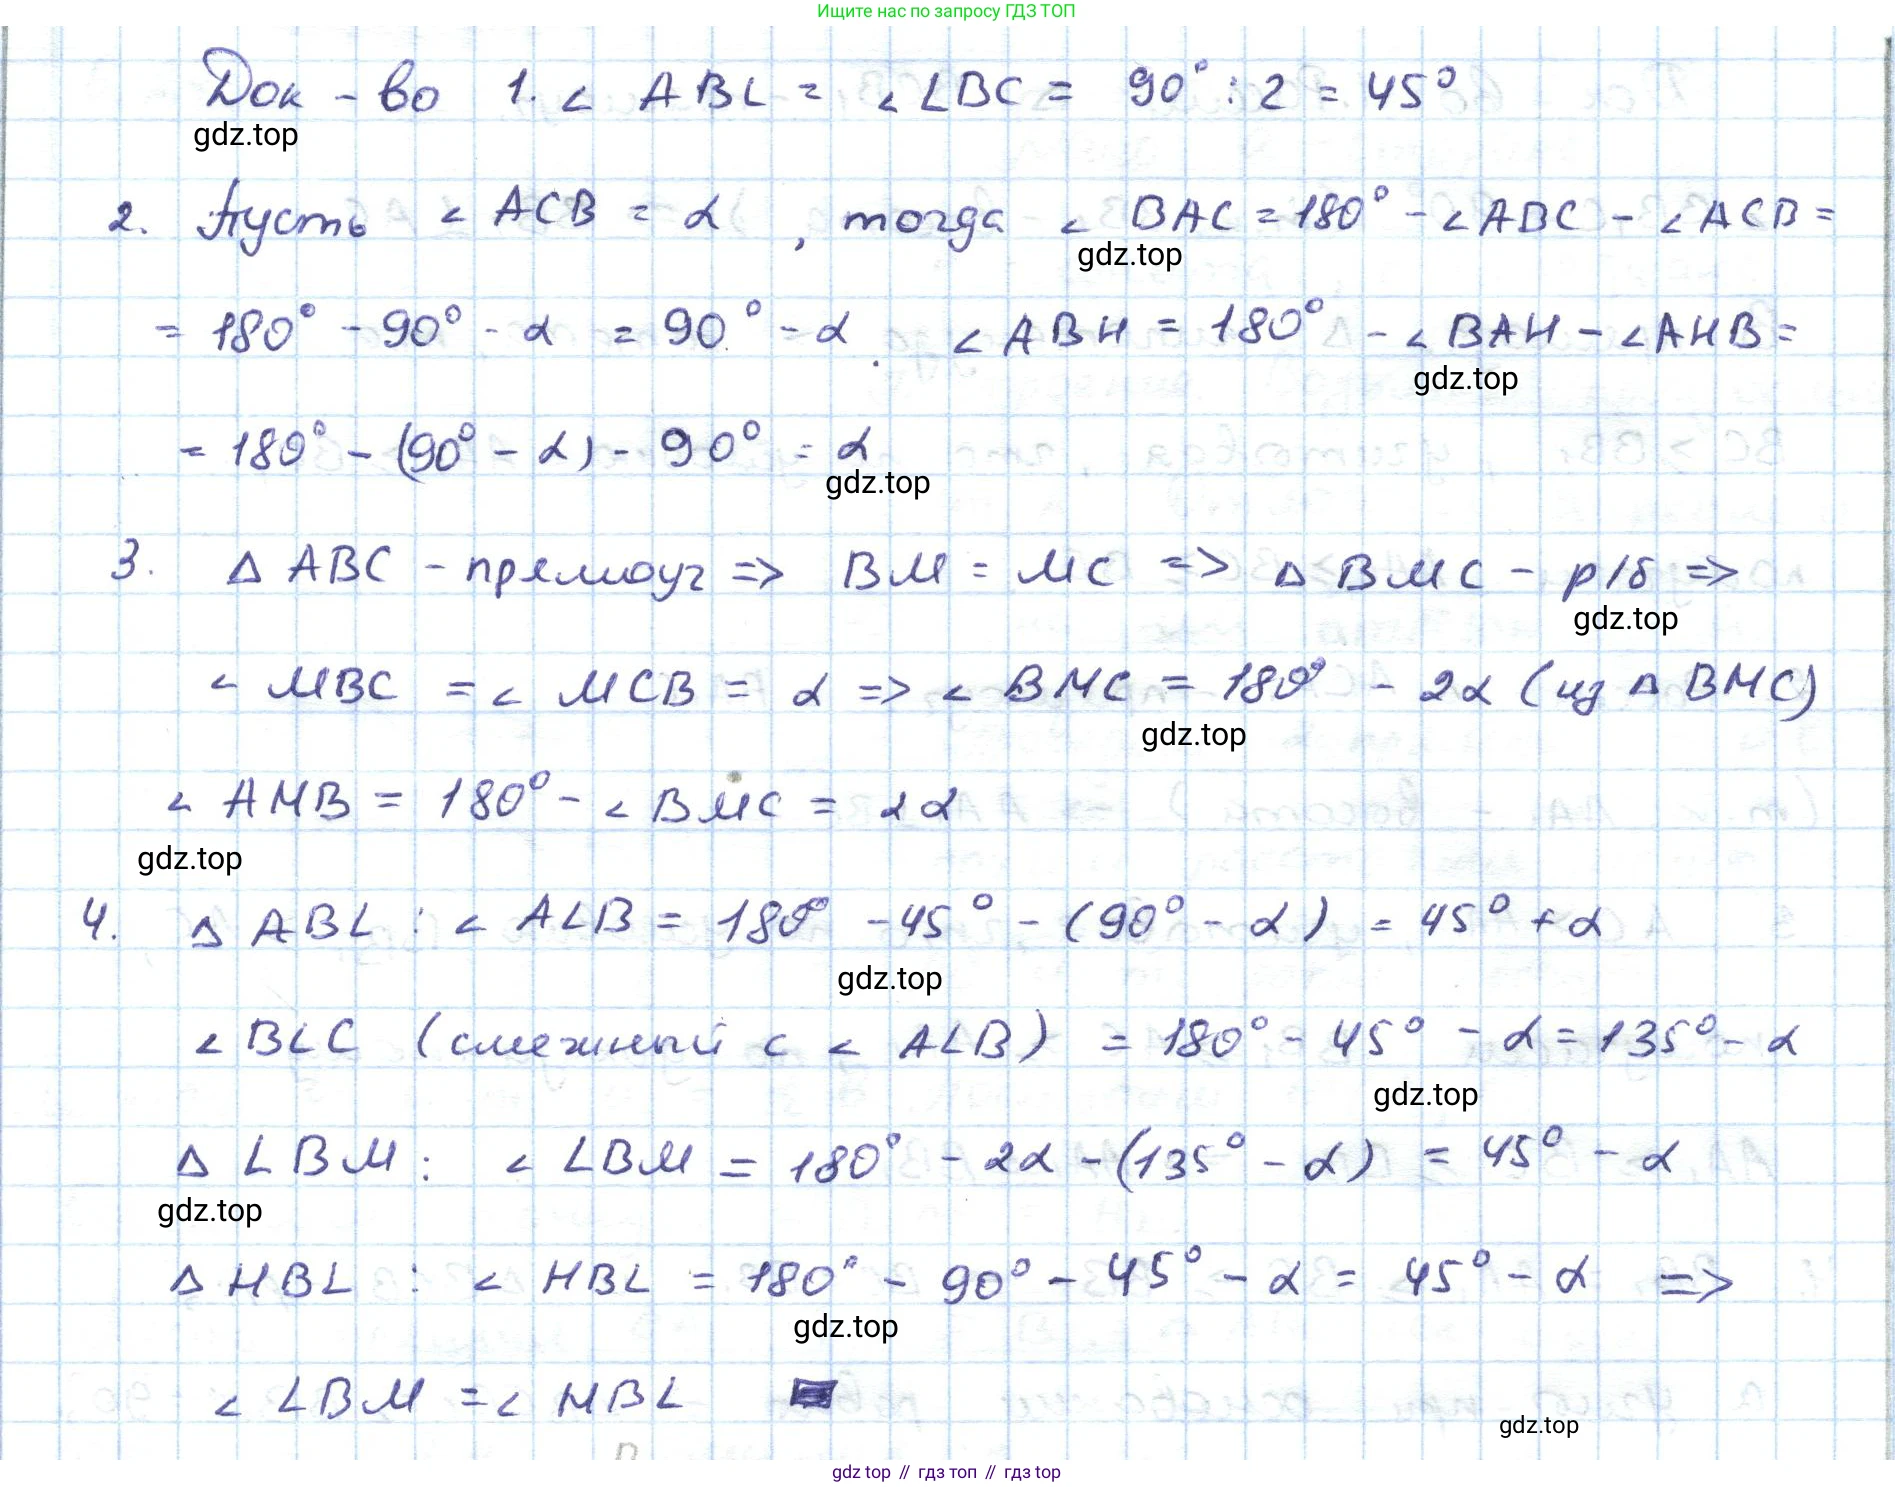 Ищите нас по запросу ГДЗ ТОП
Док-во 1. ∠ ABL = ∠ LBC = 90° : 2 = 45°
gdz.top
2. Пусть ∠ ACB = α, тогда ∠ BAC = 180° - ∠ABC - ∠ACB =
gdz.top
= 180° - 90° - α = 90° - α. ∠ ABH = 180° - ∠BAH - ∠AHB =
gdz.top
= 180° - (90° - α) - 90° = α
gdz.top
3. Δ ABC - прямоуг => BM = MC => Δ BMC - р/б =>
gdz.top
∠ MBC = ∠ MCB = α => ∠ BMC = 180° - 2α (из Δ BMC)
gdz.top
∠ AMB = 180° - ∠ BMC = 2α
gdz.top
4. Δ ABL : ∠ ALB = 180° - 45° - (90° - α) = 45° + α
gdz.top
∠ BLC (смежный с ∠ ALB) = 180° - 45° - α = 135° - α
gdz.top
Δ LBM : ∠ LBM = 180° - 2α - (135° - α) = 45° - α
gdz.top
Δ HBL : ∠ HBL = 180° - 90° - 45° - α = 45° - α =>
gdz.top
∠ LBM = ∠ HBL
gdz.top
gdz top // гдз топ // гдз top